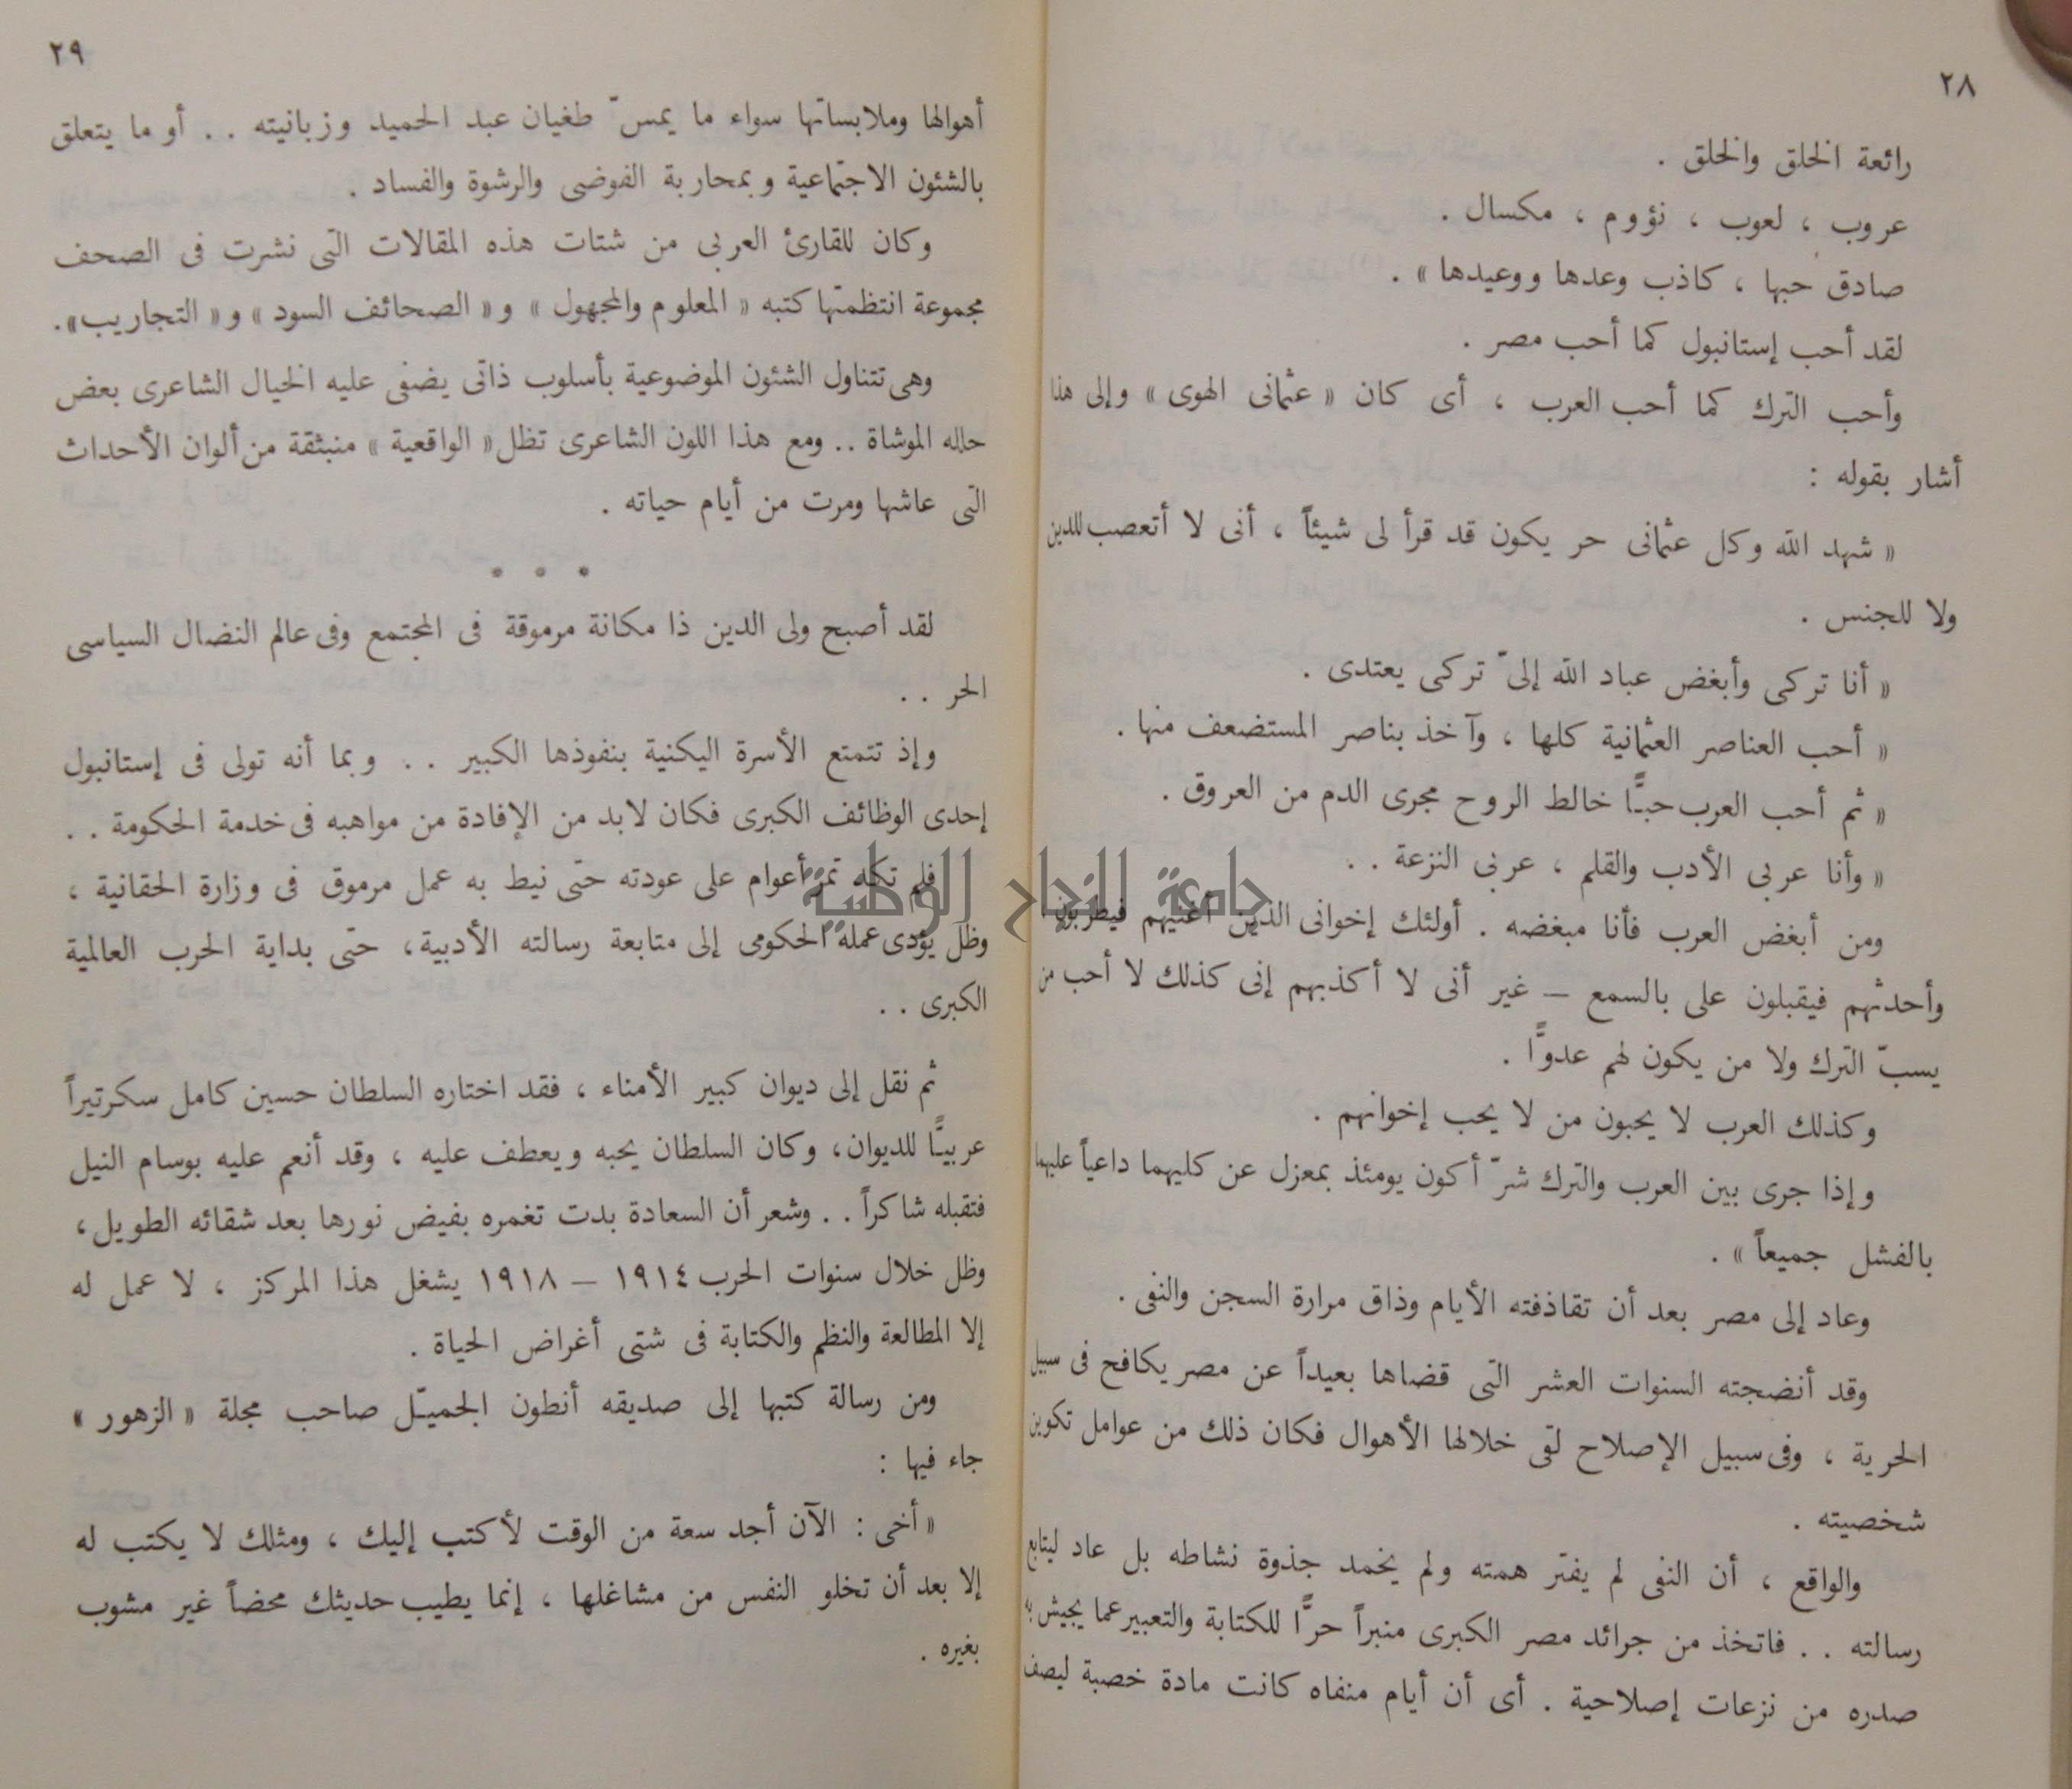 ٢٨
رائعة الخلق والخلق .
عروب ، لعوب ، نؤوم ، مكسال .
صادق حبها ، كاذب وعدها ووعيدها » .
لقد أحب إستانبول كما أحب مصر .
وأحب الترك كما أحب العرب ، أى كان « عثمانى الهوى » وإلى هذا
أشار بقوله :
« شهد الله وكل عثمانى حر يكون قد قرأ لى شيئاً ، أنى لا أتعصب للدين
ولا للجنس .
« أنا تركى وأبغض عباد الله إلىّ تركى يعتدى .
« أحب العناصر العثمانية كلها ، وآخذ بناصر المستضعف منها .
« ثم أحب العرب حبًّا خالط الروح مجرى الدم من العروق .
« وأنا عربى الأدب والقلم ، عربى النزعة . .
ومن أبغض العرب فأنا مبغضه . أولئك إخوانى الذين أغنيهم فيطربون
وأحدثهم فيقبلون على بالسمع – غير أنى لا أكذبهم إنى كذلك لا أحب من
يسبّ الترك ولا من يكون لهم عدوًّا .
وكذلك العرب لا يحبون من لا يحب إخوانهم .
وإذا جرى بين العرب والترك شرّ أكون يومئذ بمعزل عن كليهما داعياً عليهما
بالفشل جميعاً » .
وعاد إلى مصر بعد أن تقاذفته الأيام وذاق مرارة السجن والنفى .
وقد أنضجته السنوات العشر التى قضاها بعيداً عن مصر يكافح فى سبيل
الحرية ، وفى سبيل الإصلاح لقى خلالها الأهوال فكان ذلك من عوامل تكوين
شخصيته .
والواقع ، أن النفى لم يفتر همته ولم يخمد جذوة نشاطه بل عاد ليتابع
رسالته . . فاتخذ من جرائد مصر الكبرى منبراً حرًّا للكتابة والتعبير عما يجيش به
صدره من نزعات إصلاحية . أى أن أيام منفاه كانت مادة خصبة ليصف
٢٩
أهوالها وملابساتها سواء ما يمسّ طغيان عبد الحميد وزبانيته . . أو ما يتعلق
بالشئون الاجتماعية وبمحاربة الفوضى والرشوة والفساد .
وكان للقارئ العربى من شتات هذه المقالات التى نشرت فى الصحف
مجموعة انتظمتها كتبه « المعلوم والمجهول » و « الصحائف السود » و « التجاريب» .
وهى تتناول الشئون الموضوعية بأسلوب ذاتى يضفى عليه الخيال الشاعرى بعض
حلله الموشاة . . ومع هذا اللون الشاعرى تظل « الواقعية » منبثقة من ألوان الأحداث
التى عاشها ومرت من أيام حياته .
• • •
لقد أصبح ولى الدين ذا مكانة مرموقة فى المجتمع وفى عالم النضال السياسى
الحر . .
وإذ تتمتع الأسرة اليكنية بنفوذها الكبير . . وبما أنه تولى فى إستانبول
إحدى الوظائف الكبرى فكان لابد من الإفادة من مواهبه فى خدمة الحكومة . .
فلم تكد تمر أعوام على عودته حتى نيط به عمل مرموق فى وزارة الحقانية ،
وظل يؤدى عمله الحكومى إلى متابعة رسالته الأدبية، حتى بداية الحرب العالمية
الكبرى . .
ثم نقل إلى ديوان كبير الأمناء ، فقد اختاره السلطان حسين كامل سكرتيراً
عربيًّا للديوان، وكان السلطان يحبه ويعطف عليه ، وقد أنعم عليه بوسام النيل
فتقبله شاكراً . . وشعر أن السعادة بدت تغمره بفيض نورها بعد شقائه الطويل،
وظل خلال سنوات الحرب ١٩١٤ – ١٩١٨ يشغل هذا المركز ، لا عمل له
إلا المطالعة والنظم والكتابة فى شتى أغراض الحياة .
ومن رسالة كتبها إلى صديقه أنطون الجميّل صاحب مجلة « الزهور »
جاء فيها :
« أخى : الآن أجد سعة من الوقت لأكتب إليك ، ومثلك لا يكتب له
إلا بعد أن تخلو النفس من مشاغلها ، إنما يطيب حديثك محضاً غير مشوب
بغيره .
جامعة النجاح الوطنية